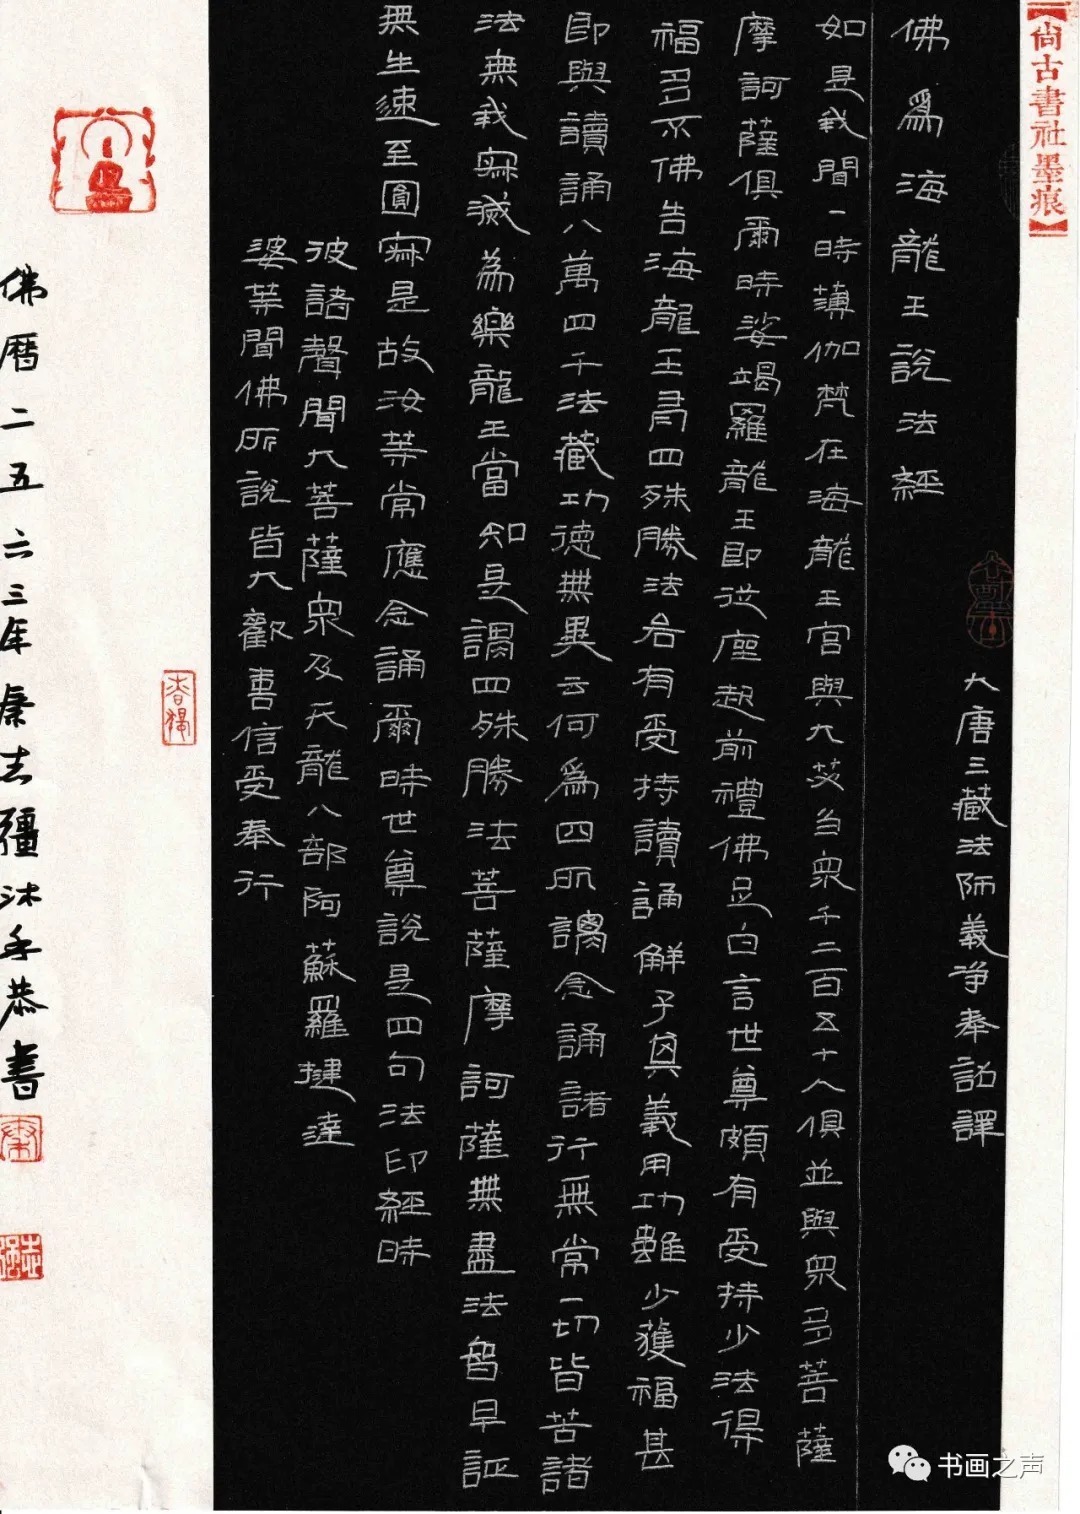 【尚古書社墨痕】
佛爲海龍王說法經
大唐三藏法師義淨奉詔譯
如是我聞一時薄伽梵在海龍王宮與大苾芻眾千二百五十人俱並與眾多菩薩
摩訶薩俱爾時娑竭羅龍王即從座起前禮佛足白言世尊頗有受持少法得
福多不佛告海龍王有四殊勝法若有受持讀誦解了其義用功雖少獲福甚
即與讀誦八萬四千法藏功德無異云何爲四所謂念誦諸行無常一切皆苦諸
法無我寂滅為樂龍王當知是謂四殊勝法菩薩摩訶薩無盡法智早証
無生速至圓寂是故汝等常應念誦爾時世尊說是四句法印經時
彼諸聲聞大菩薩眾及天龍八部阿蘇羅揵達
婆等聞佛所說皆大歡喜信受奉行
佛曆二五六三年秦志彊沐手恭書
秦
志強
书画之声